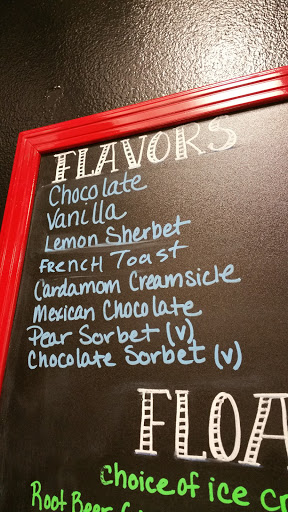 FLAVORS
Chocolate
Vanilla
Lemon Sherbet
FRENCH TOAST
Cardamom Creamsicle
Mexican Chocolate
Pear Sorbet (v)
Chocolate Sorbet (v)
FLOA
Choice of ice cr
Root Beer